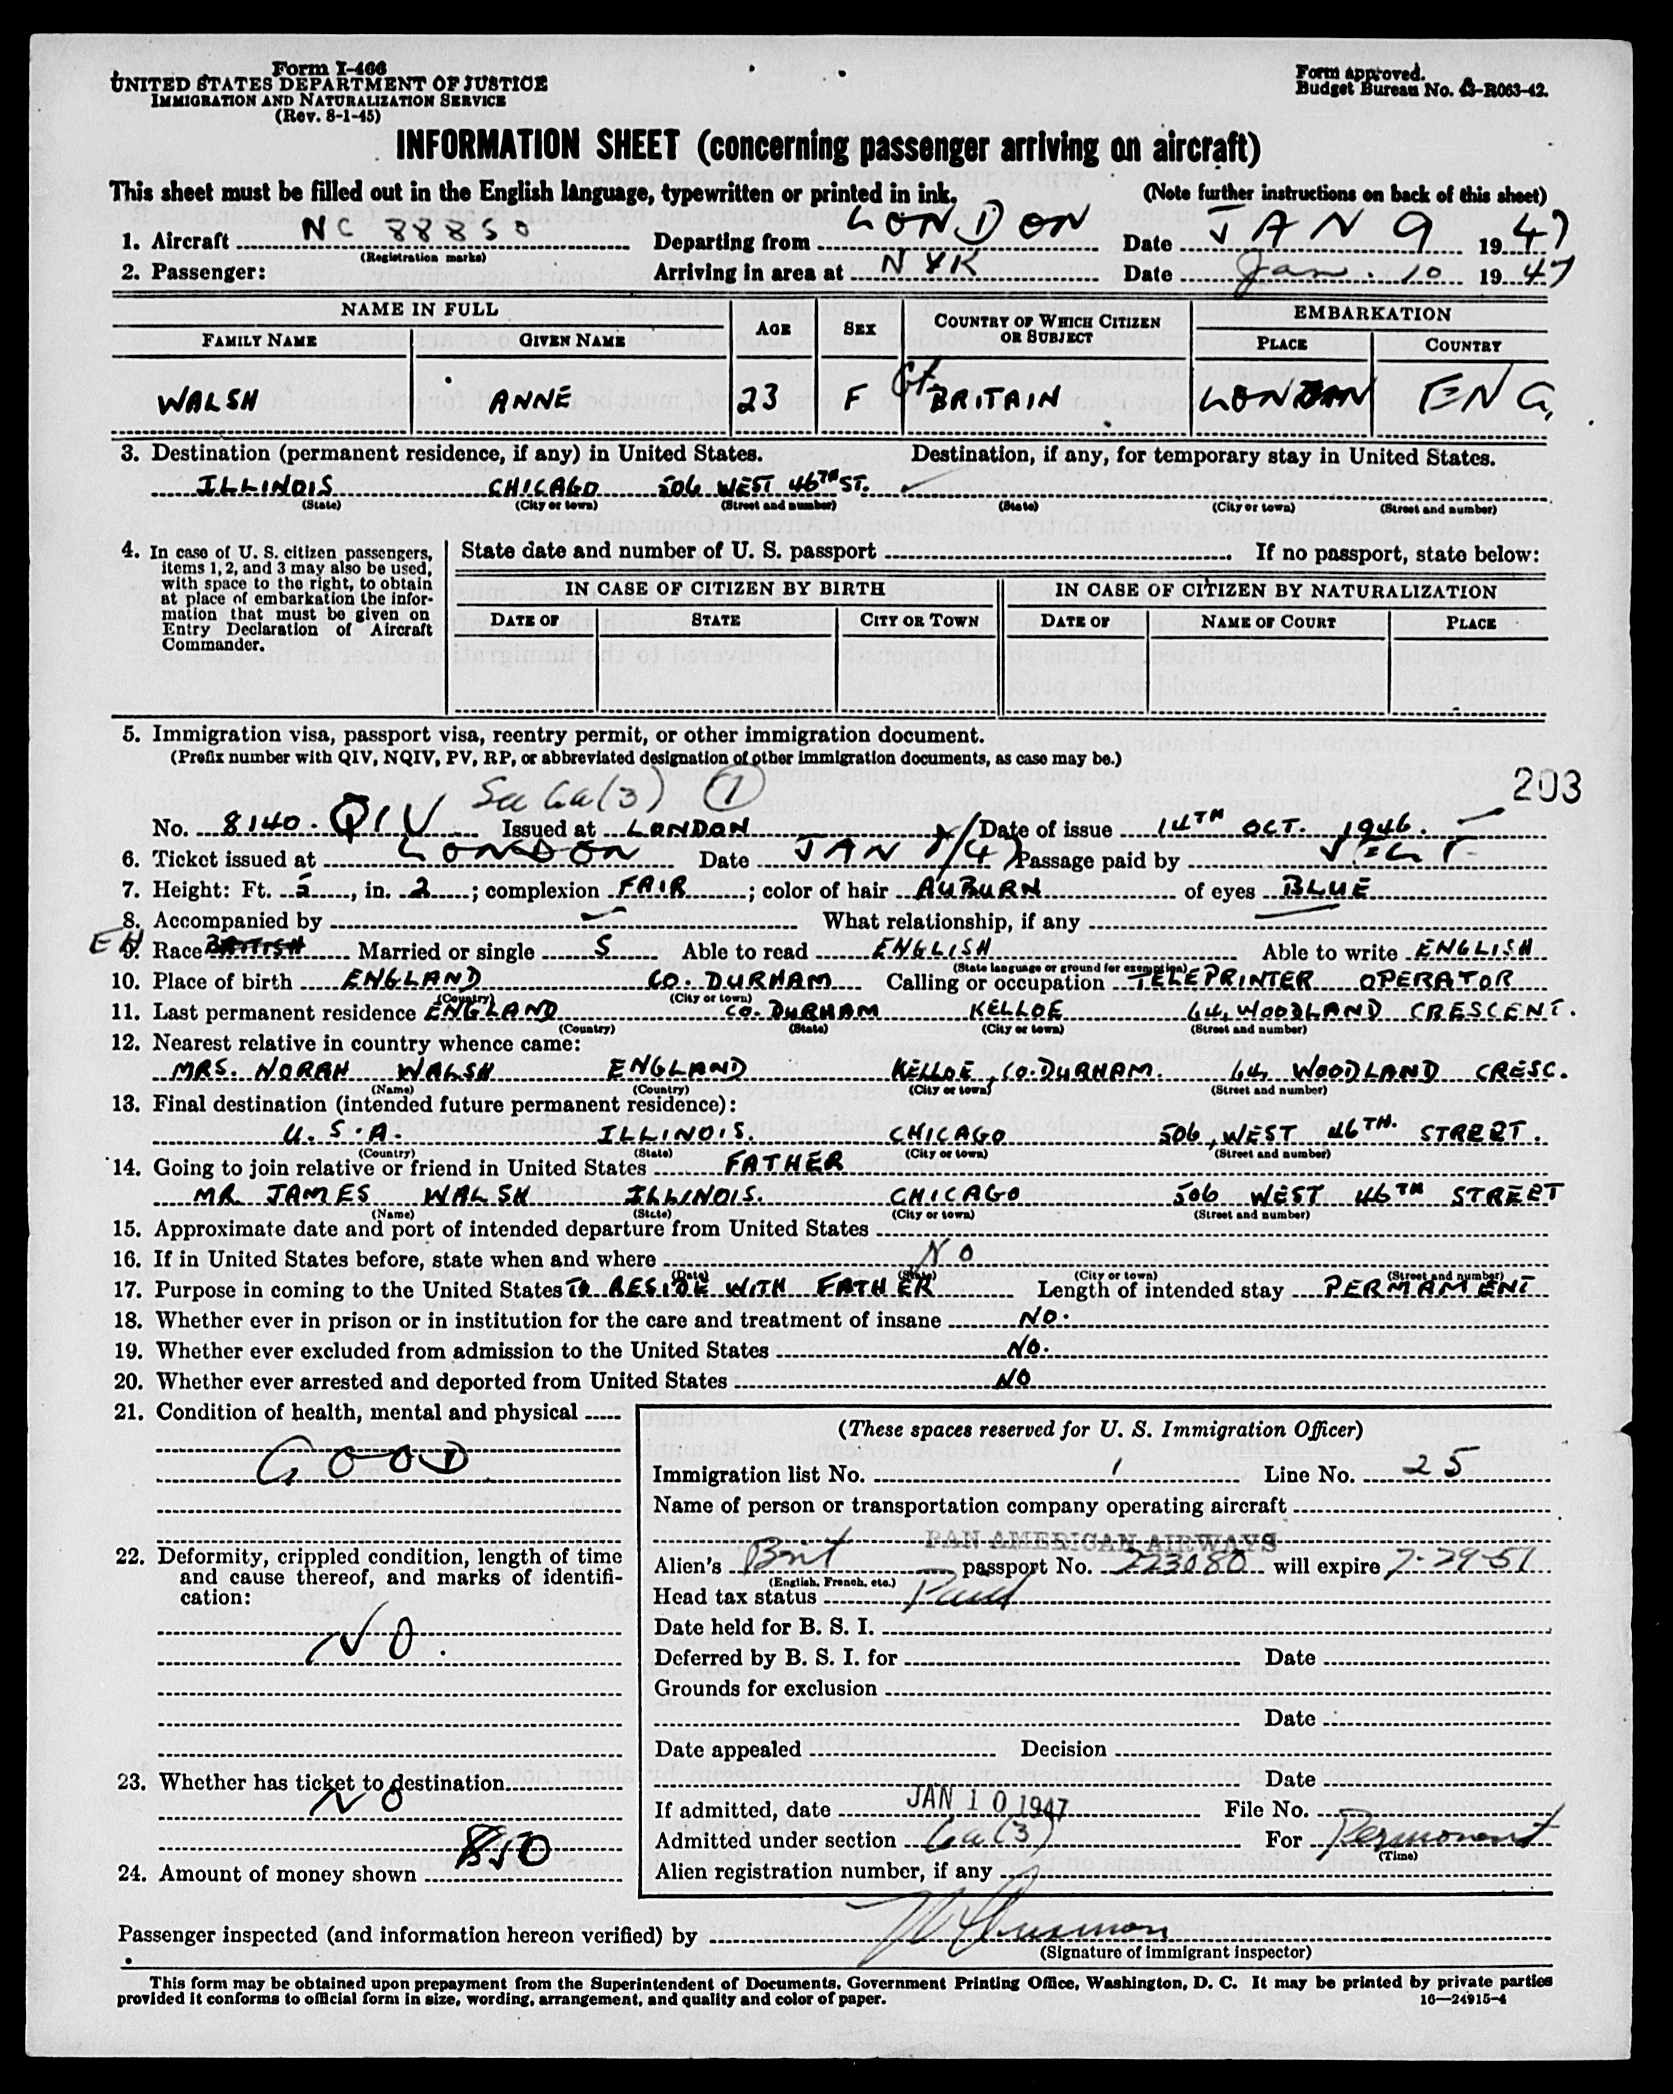 Form I-466
UNITED STATES DEPARTMENT OF JUSTICE
IMMIGRATION AND NATURALIZATION SERVICE
(Rev. 8-1-45)
Form approved.
Budget Bureau No. 43-R063-42.
INFORMATION SHEET (concerning passenger arriving on aircraft)
This sheet must be filled out in the English language, typewritten or printed in ink. (Note further instructions on back of this sheet)
1. Aircraft NC 88850 Departing from LONDON Date JAN 9 1947
(Registration marks)
2. Passenger: Arriving in area at NYK Date Jan. 10 1947
NAME IN FULL AGE SEX COUNTRY OF WHICH CITIZEN OR SUBJECT EMBARKATION
FAMILY NAME GIVEN NAME PLACE COUNTRY
WALSH ANNE 23 F Gt. BRITAIN LONDON ENG.
3. Destination (permanent residence, if any) in United States. Destination, if any, for temporary stay in United States.
ILLINOIS CHICAGO 506 WEST 46TH ST.
(State) (City or town) (Street and number) (State) (City or town) (Street and number)
4. In case of U. S. citizen passengers, items 1, 2, and 3 may also be used, with space to the right, to obtain at place of embarkation the information that must be given on Entry Declaration of Aircraft Commander.
State date and number of U. S. passport If no passport, state below:
IN CASE OF CITIZEN BY BIRTH IN CASE OF CITIZEN BY NATURALIZATION
DATE OF STATE CITY OR TOWN DATE OF NAME OF COURT PLACE
5. Immigration visa, passport visa, reentry permit, or other immigration document.
(Prefix number with QIV, NQIV, PV, RP, or abbreviated designation of other immigration documents, as case may be.)
See 6a(3) 1 203
No. 8140. QIV Issued at LONDON Date of issue 14TH OCT. 1946.
6. Ticket issued at LONDON Date JAN 8/47 Passage paid by SELF
7. Height: Ft. 5, in. 2; complexion FAIR; color of hair AUBURN of eyes BLUE
8. Accompanied by What relationship, if any
EN
9. Race BRITISH Married or single S Able to read ENGLISH Able to write ENGLISH
(State language or ground for exemption)
10. Place of birth ENGLAND CO. DURHAM Calling or occupation TELEPRINTER OPERATOR
(Country) (City or town)
11. Last permanent residence ENGLAND CO. DURHAM KELLOE 64, WOODLAND CRESCENT.
(Country) (State) (City or town) (Street and number)
12. Nearest relative in country whence came:
MRS. NORAH WALSH ENGLAND KELLOE, CO. DURHAM. 64 WOODLAND CRESC.
(Name) (Country) (City or town) (Street and number)
13. Final destination (intended future permanent residence):
U.S.A. ILLINOIS. CHICAGO 506, WEST 46TH. STREET.
(Country) (State) (City or town) (Street and number)
14. Going to join relative or friend in United States FATHER
MR JAMES WALSH ILLINOIS. CHICAGO 506 WEST 46TH STREET
(Name) (State) (City or town) (Street and number)
15. Approximate date and port of intended departure from United States
16. If in United States before, state when and where NO
(Date) (State) (City or town) (Street and number)
17. Purpose in coming to the United States TO RESIDE WITH FATHER Length of intended stay PERMAMENT
18. Whether ever in prison or in institution for the care and treatment of insane NO.
19. Whether ever excluded from admission to the United States NO.
20. Whether ever arrested and deported from United States NO
21. Condition of health, mental and physical
GOOD
22. Deformity, crippled condition, length of time and cause thereof, and marks of identification:
NO.
23. Whether has ticket to destination
NO
24. Amount of money shown $50
(These spaces reserved for U. S. Immigration Officer)
Immigration list No. 1 Line No. 25
Name of person or transportation company operating aircraft
PAN AMERICAN AIRWAYS
Alien's Brit passport No. 223080 will expire 7-29-51
(English, French, etc.)
Head tax status Paid
Date held for B. S. I.
Deferred by B. S. I. for Date
Grounds for exclusion
Date
Date appealed Decision
Date
If admitted, date JAN 10 1947 File No.
Admitted under section 6a(3) For Permanent
(Time)
Alien registration number, if any
Passenger inspected (and information hereon verified) by
(Signature of immigrant inspector)
This form may be obtained upon prepayment from the Superintendent of Documents, Government Printing Office, Washington, D. C. It may be printed by private parties
provided it conforms to official form in size, wording, arrangement, and quality and color of paper. 16—24915-4